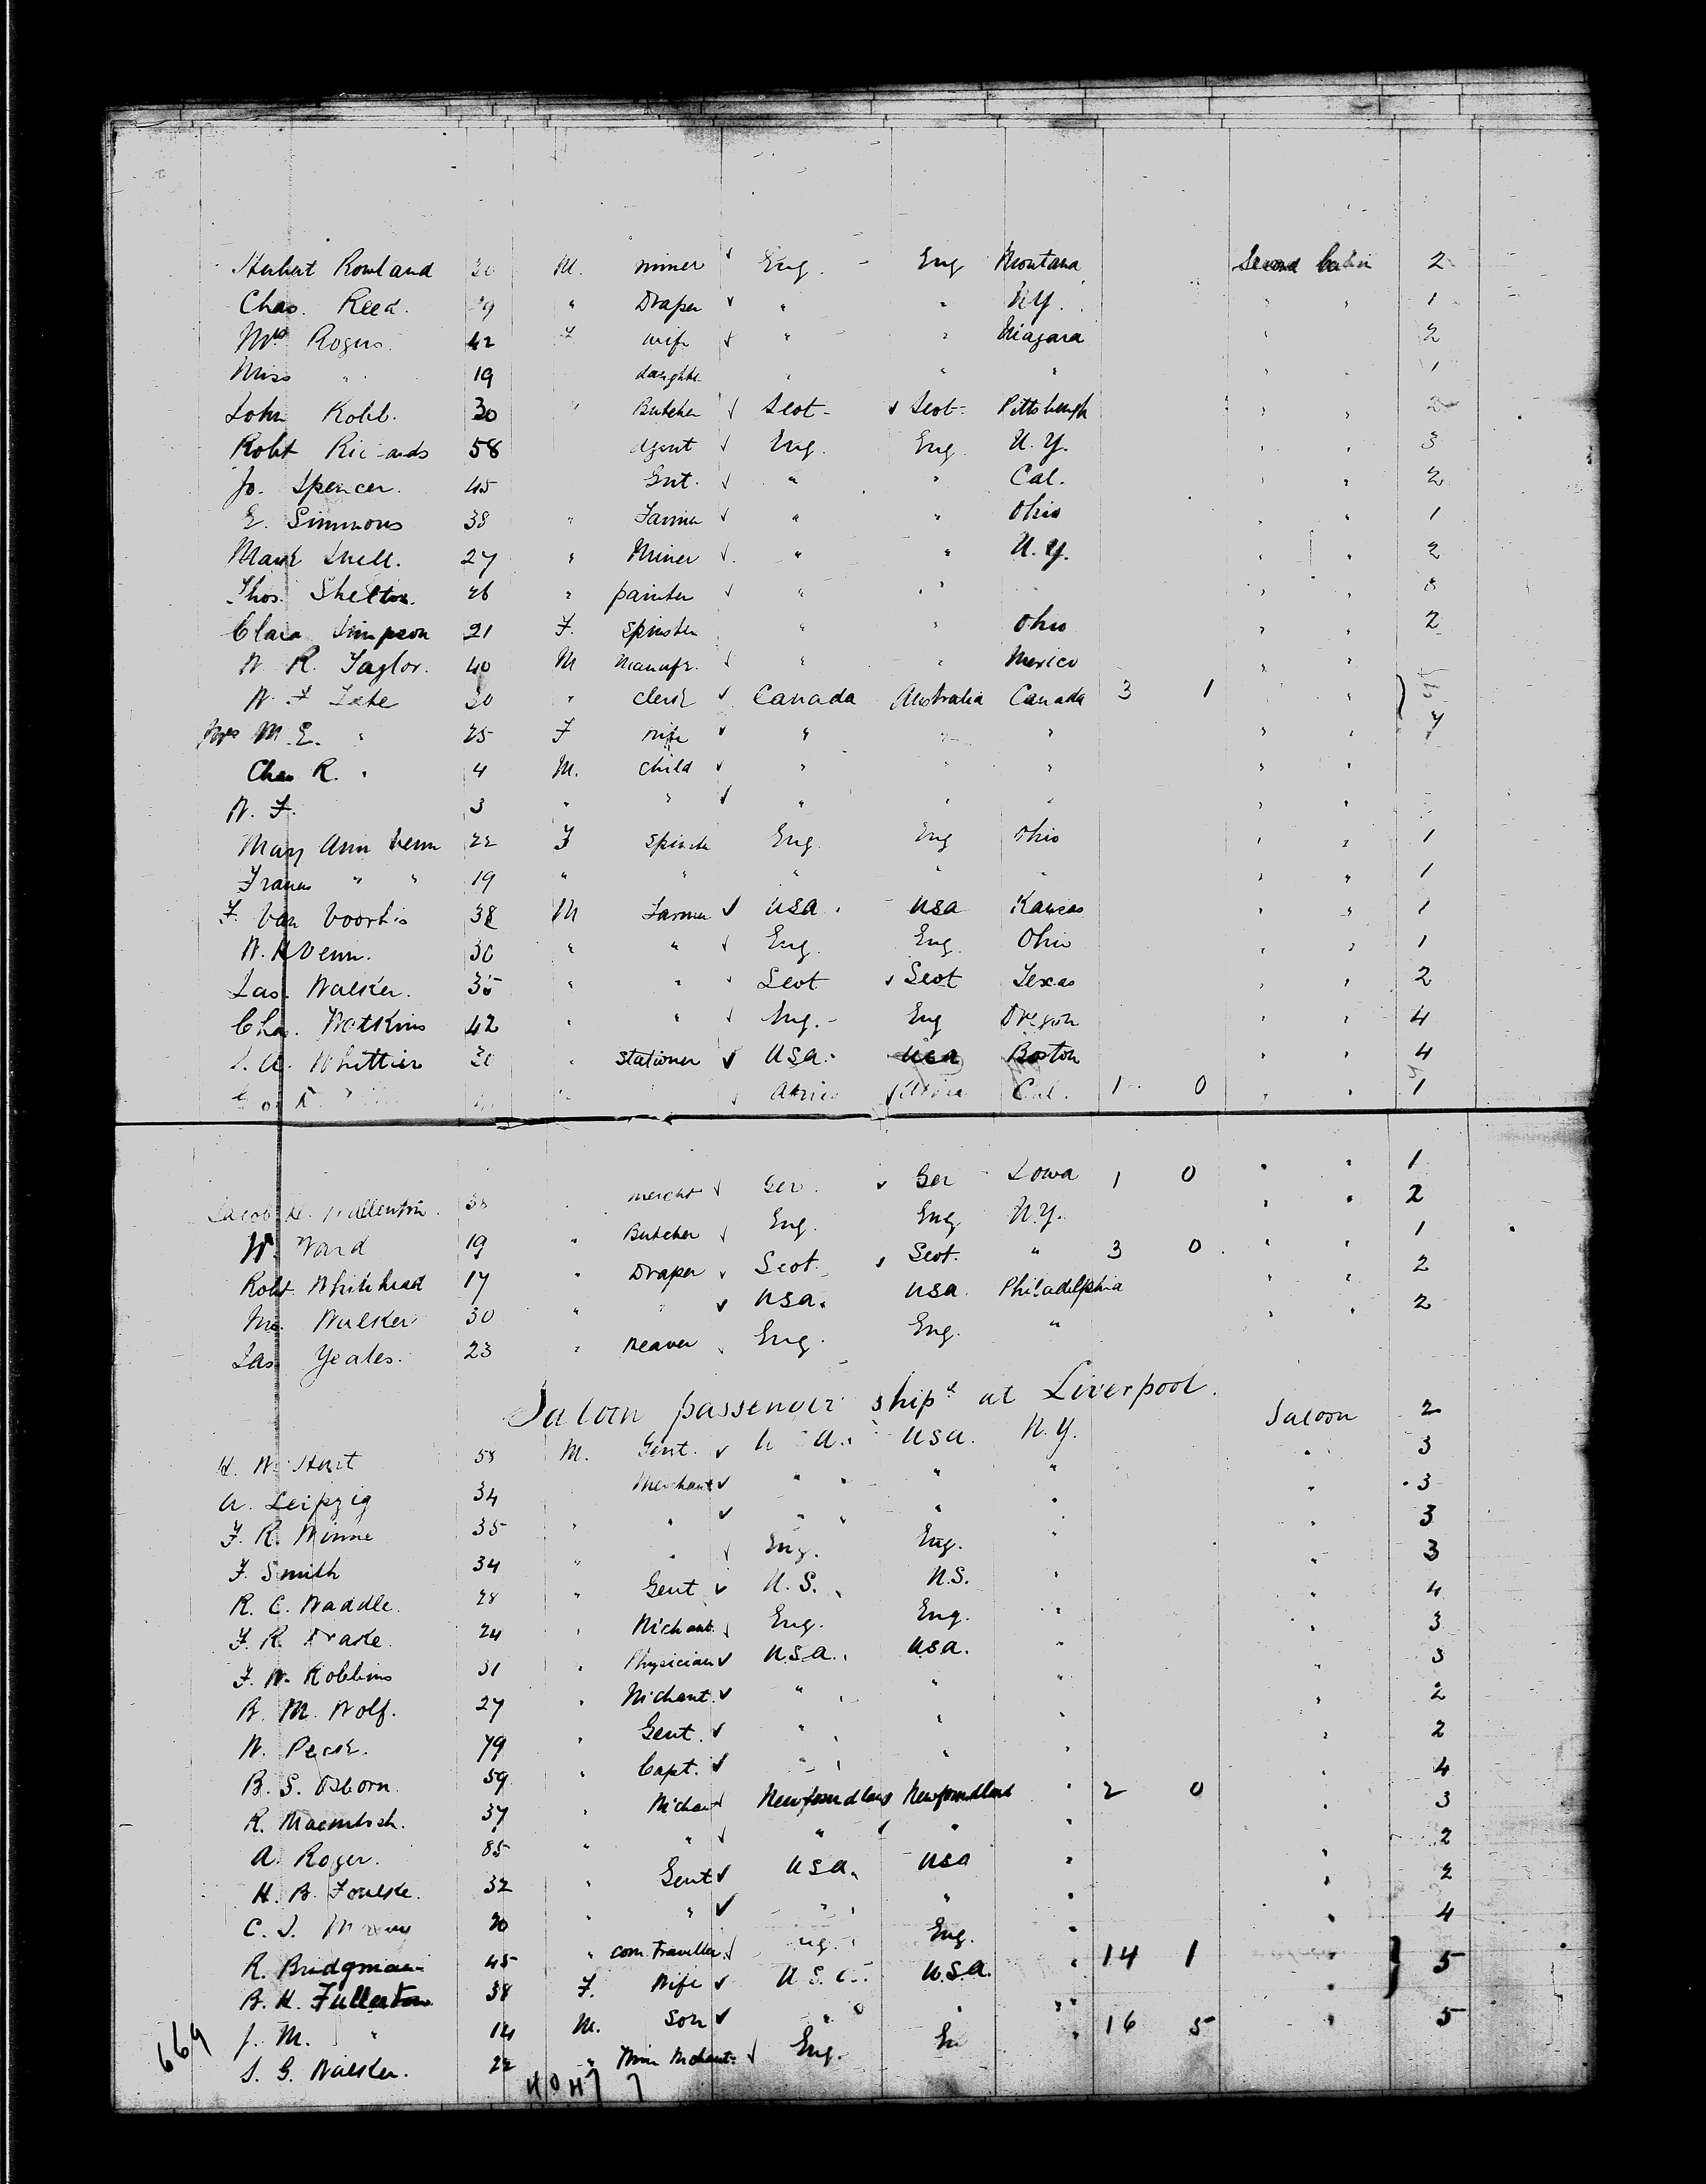 Herbert Rowland 30 M. miner Eng. Eng Montana Second Cabin 2
Chas. Reed. 19 " Draper " " N.Y. " " 1
Mrs Rogers 42 F wife " " Niagara " 2
Miss " 19 daughter " " " " 1
John Robb. 30 " Butcher Scot- Scot- Pittsburgh " " 2
Robt Ric-ards 58 agent Eng. Eng. N.Y. " " 3
Jo. Spencer. 45 Gnt. " " Cal. " " 2
E. Simmons 38 " Farmer " " Ohio " " 1
Mark Snell. 27 " Miner " " N.Y. " " 2
Thos. Shelton. 26 " painter " " " "
Clara Simpson 21 F. Spinster " " Ohio " " 2
W R. Taylor. 40 M Manufr. " " Mexico " "
W. F Tate 30 " Clerk Canada Australia Canada 3 1 " "
Mrs M.E. " 25 F wife " " " " "
Chas R. " 4 M. Child " " " " "
W. F. 3 " " " " " " "
Mary Ann Venn 22 F Spinster Eng. Eng Ohio " " 1
Frances " " 19 " " " " " " " 1
F. Van Voorhis 38 M Farmer USA. USA Kansas " " 1
W. H Venn. 30 " " Eng. Eng. Ohio " " 1
Jas. Walker. 35 " " Scot Scot Texas " " 2
Chas. Watkins 42 " " Eng.- Eng Oregon " " 4
Whittier 30 " Stationer USA. USA Boston " " 4
Cal. 1 0 " " 1
Jacob 38 " mercht Ger. Ger Iowa 1 0 " " 1
W. Ward 19 " Butcher Eng. Eng N.Y. " " 2
Robt Whitehead 17 " Draper Scot. Scot. " 3 0 " " 1
Walker 30 " " USA. USA. Philadelphia " " 2
Jas Yeates. 23 " Weaver Eng. Eng. " " " 2
Saloon passenger shipd at Liverpool.
H. W. Hart 58 M. Gent. USA. N.Y. Saloon 2
A. Leipzig 34 Merchant " " " " 3
F. R. Winne 35 " " " " " " 3
F. Smith 34 " " Eng. Eng. " " 3
R. C. Waddle. 28 " Gent U.S. U.S. " " 3
F. R. Drake. 24 " Mchant. Eng. Eng. " " 4
F. W. Robbins 31 " Physician U.S.A. USA. " " 3
B. M. Wolf. 27 " Mchant. " " " " 3
W. Peck. 79 " Gent. " " " " 2
B. S. Osborn. 59 " Capt. " " " " 2
R. Macintosh. 37 " Mchant Newfoundland Newfoundland " 2 0 " 4
A. Roger. 85 " " " " " " 3
H. B. Foulke. 32 " Gent USA. USA " " 2
C. J. 30 " " " " " " 2
R. Bridgman 45 " com. Traveller Eng. Eng. " " 4
B. H. Fullerton 38 F. Wife U.S.A. U.S.A. " 14 1 " 5
J. M. " 14 M. Son " " " "
J. G. Walker. 22 " Eng. En " 16 5 " 5
669